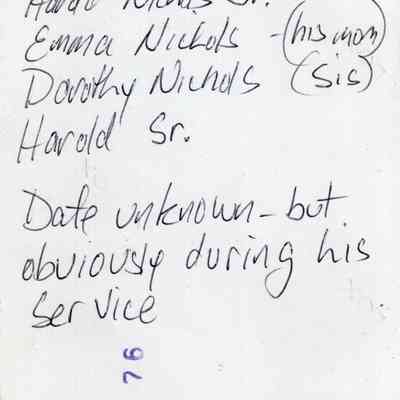 Harold Nichols Sr.
Emma Nichols - (his mom)
Dorothy Nichols (Sis)
Harold Sr.
Date unknown - but
obviously during his
service
76